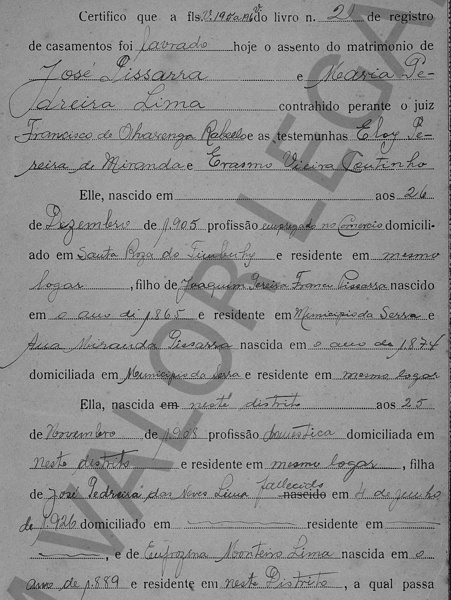 Certifico que a fls. Vº 190 a 196 Vº do livro n. 2 de registro
de casamentos foi lavrado hoje o assento do matrimonio de
José Pissarra e Maria Pe-
dreira Lima contrahido perante o juiz
Francisco de Alvarenga Rabello e as testemunhas Eloy Pe-
reira de Miranda e Erasmo Vieira Coutinho
Elle, nascido em aos 26
de Dezembro de 1.905 profissão empregado no Comercio domicili-
ado em Santa Roza do Timbuhy e residente em mesmo
logar, filho de Joaquim Pereira Franco Pissarra nascido
em o ano de 1.865 e residente em Municipio da Serra e
Ana Miranda Pissarra nascida em o ano de 1874
domiciliada em Municipio da Serra e residente em mesmo logar
Ella, nascida em neste distrito aos 25
de Novembro de 1.908 profissão domestica domiciliada em
Neste distrito e residente em mesmo logar, filha
de José Pedreira das Neves Lima fallecido nascido em 4 de junho
de 1.926 domiciliado em residente em
, e de Eufrozina Monteiro Lima nascida em o
ano de 1.889 e residente em neste Distrito, a qual passa
A VALOR LEGAL